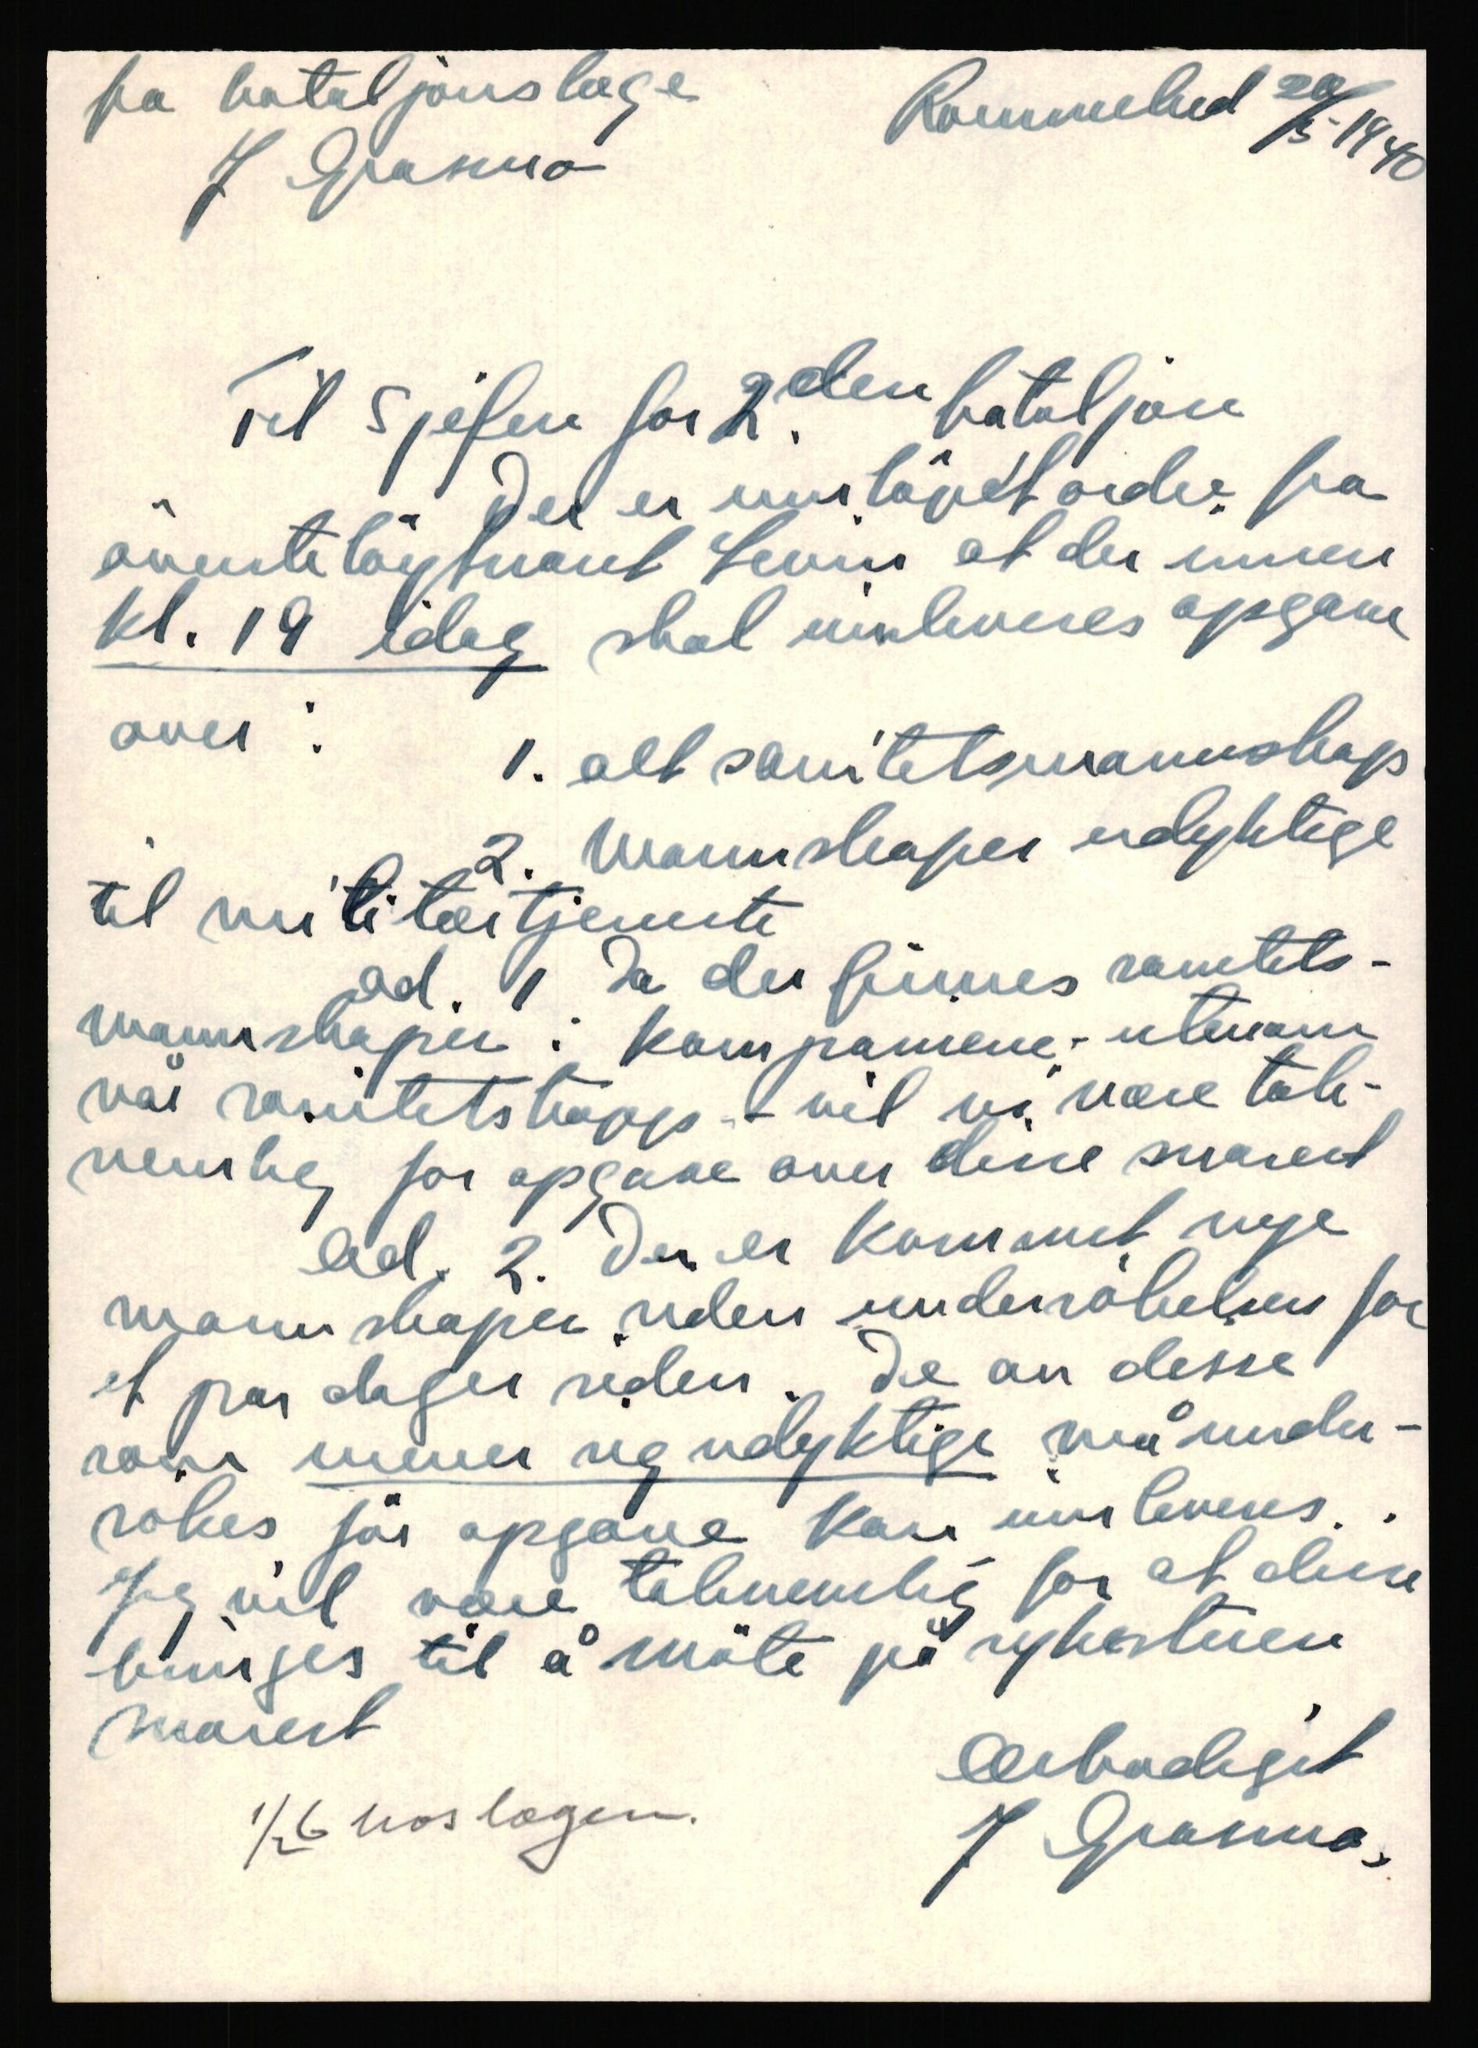 fra bataljonslæge
J Grasmo
Rommehed 20/5-1940
Til Sjefen for 2.den bataljon
Der er innløpet ordre fra
överstelöytnant Levin at der innen
kl. 19 idag skal innleveres opgave
over :
1. alt sanitetsmannskap
2. Mannskaper udyktige
til militærtjeneste
ad. 1 Da der finnes sanitets-
mannskaper i kompaniene - utenom
vår sanitetstropp - vil vi være tak-
nemlig for opgave over disse snarest
ad. 2. Der er kommet nye
mannskaper uden undersökelse for
et par dager siden. De av disse
som mener sig udyktige må under-
sökes för opgave kan innleveres.
Jeg vil være taknemlig for at disse
bringes til å möte på sykestuen
snarest
Ærbødigst
J Grasmo.
1/6 hos lægen.